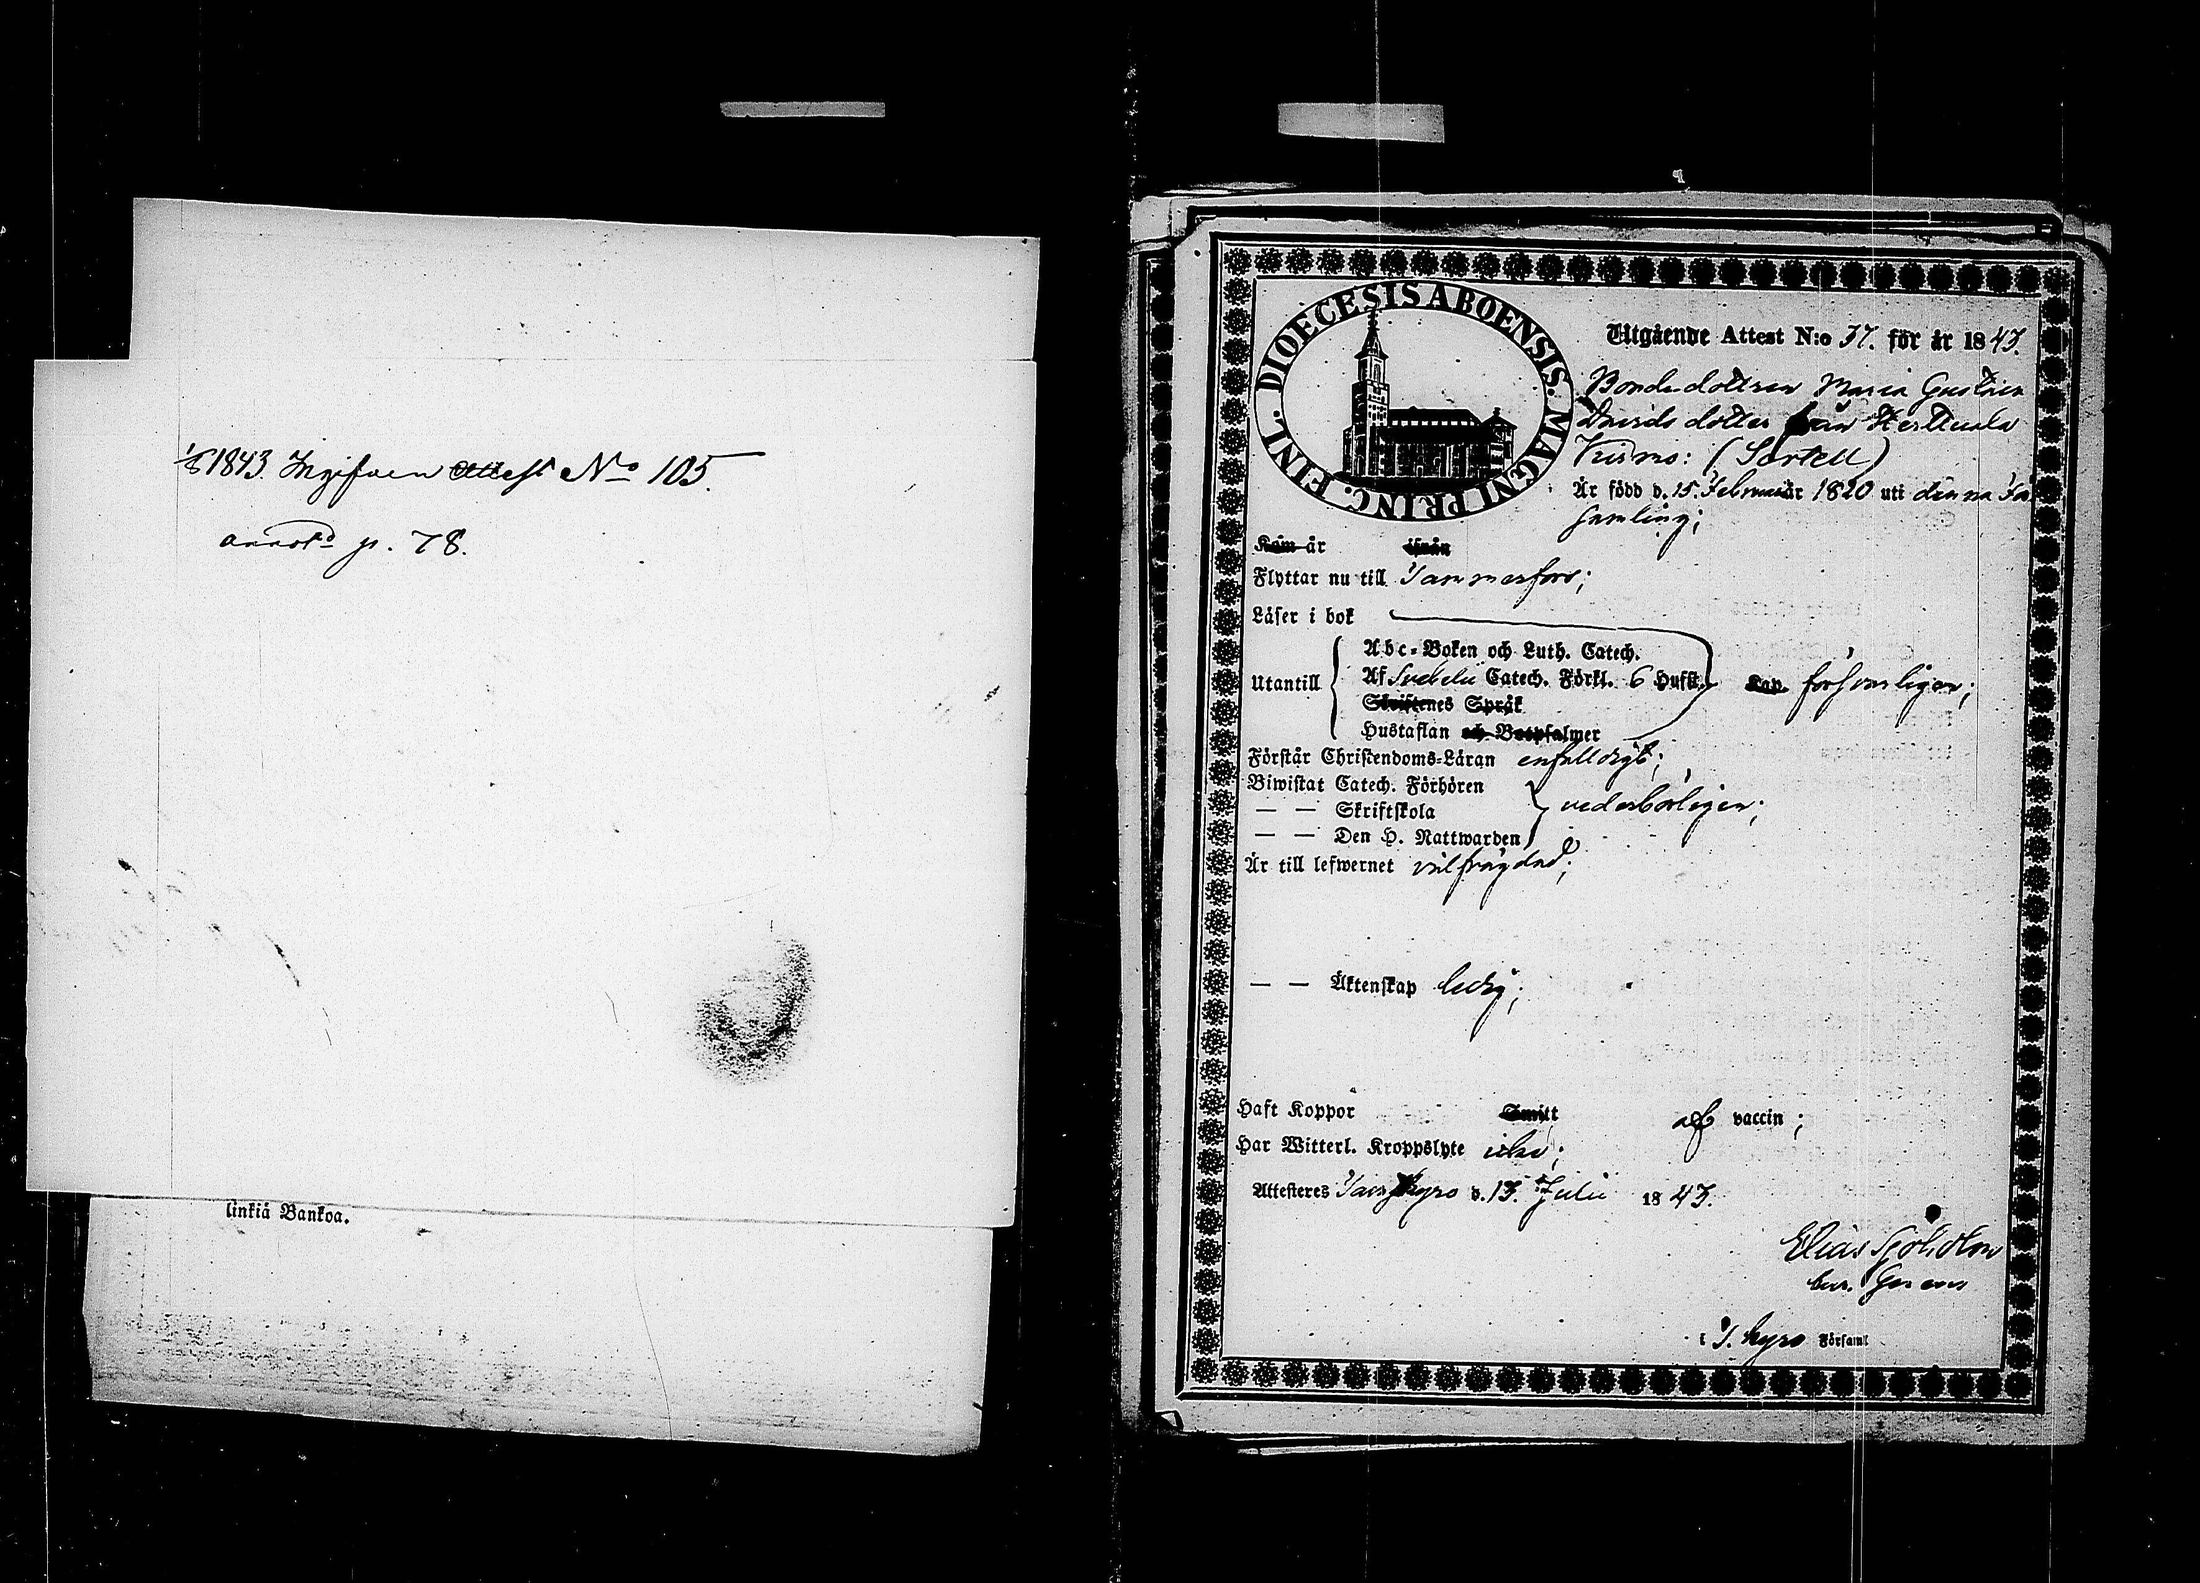 1843. Ingifven Attest No 105.
annotd p. 78.
linkiä Bankoa.
DIOECESIS ABOENSIS. MAGNI PRINC. FINL.
Utgående Attest N:o 37. för år 1843.
Bondedottren Maria Gustava
Davids dotter från Herttuala
(Sortell)
Är född d. 15. Februar 1820 uti denna För
samling;
Kom år ifrån
Flyttar nu till Tammerfors;
Läser i bok
Utantill
Abc-Boken och Luth. Catech.
Af Svebelii Catech. Förkl. 6 Hufst. Cap. försvarligen;
Skriftenes Språk
Hustaflan och Botpsalmer
Förstår Christendoms-Läran enfaldigt;
Biwistat Catech. Förhören
— — Skriftskola vederbörligen;
— — Den H. Nattwarden
Är till lefwernet välfrägdad;
— — Äktenskap ledig;
Haft Koppor Smitt af vaccin;
Har Witterl. Kroppslyte icke;
Attesteres Tavastkyro d. 13. Julii 1843.
Elias
i T. Kyro Församl